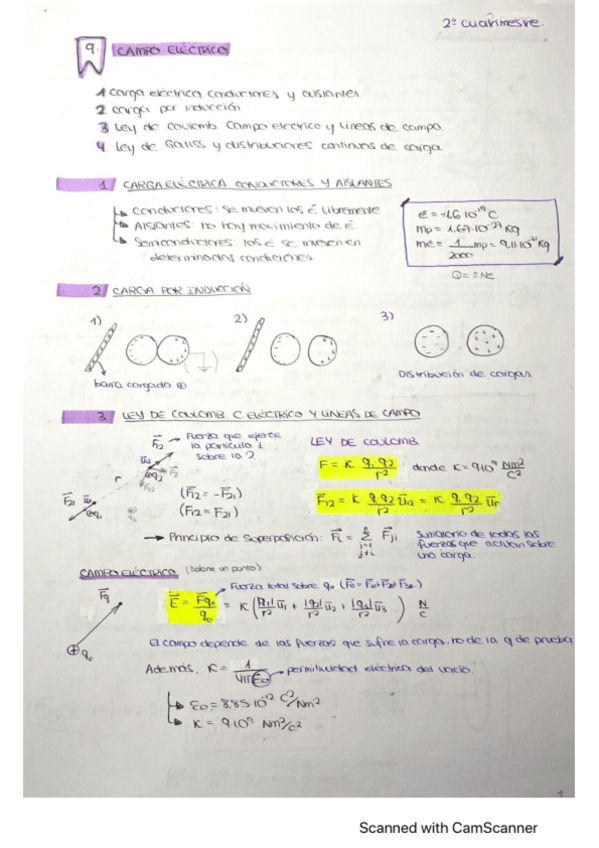 2º cuatrimestre.
9. CAMPO ELÉCTRICO
1 carga eléctrica conductores y aislantes
2 carga por inducción
3 Ley de coulomb. Campo eléctrico y Líneas de campo.
4. Ley de Gauss y distribuciones continuas de carga.
1 CARGA ELÉCTRICA. CONDUCTORES Y AISLANTES
Conductores: se mueven los ē libremente
Aislantes: no hay movimiento de ē.
Semiconductores: los ē se mueven en
determinadas condiciones
e = -1,6·10⁻¹⁹ C
mp = 1.67·10⁻²⁷ Kg
mē = 1/2000 mp = 9,11·10⁻³¹ Kg
Q = ±Ne
2 CARGA POR INDUCCIÓN
1) 2) 3)
barra cargada ⊕
Distribución de cargas.
3. LEY DE COULOMB. C. ELÉCTRICO Y LÍNEAS DE CAMPO
F₁₂ → Fuerza que ejerce
la partícula 1
sobre la 2.
r
(F₁₂ = -F₂₁)
(F₁₂ = F₂₁)
LEY DE COULOMB
F = K q₁ q₂ / r² donde K = 9·10⁹ Nm²/C²
F₁₂ = K q q₂ / r² u₁₂ = K q₁ q₂ / r² ur
→ Principio de Superposición: Fi = Σ Fji
Sumatorio de todas las
fuerzas que actúan sobre
una carga.
CAMPO ELÉCTRICO (Sobre un punto)
Fq
q₀
Fuerza total sobre q₀
E = Fq₀ / q₀ = K (|q₁|/r² u₁ + |q₂|/r² u₂ + |q₃|/r² u₃ ...) N/C
El campo depende de las fuerzas que sufre la carga, no de la q de prueba
Además, K = 1/4πε₀ → permitividad eléctrica del vacío.
ε₀ = 8.85·10⁻¹² C²/Nm²
K = 9·10⁹ Nm²/C²
1
Scanned with CamScanner